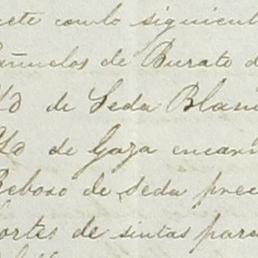 con lo siguient
añuelos de Burato d
Yd de Seda Blan
Yd de Gaza encarn
Reboso de seda pre
ortes de sintas para